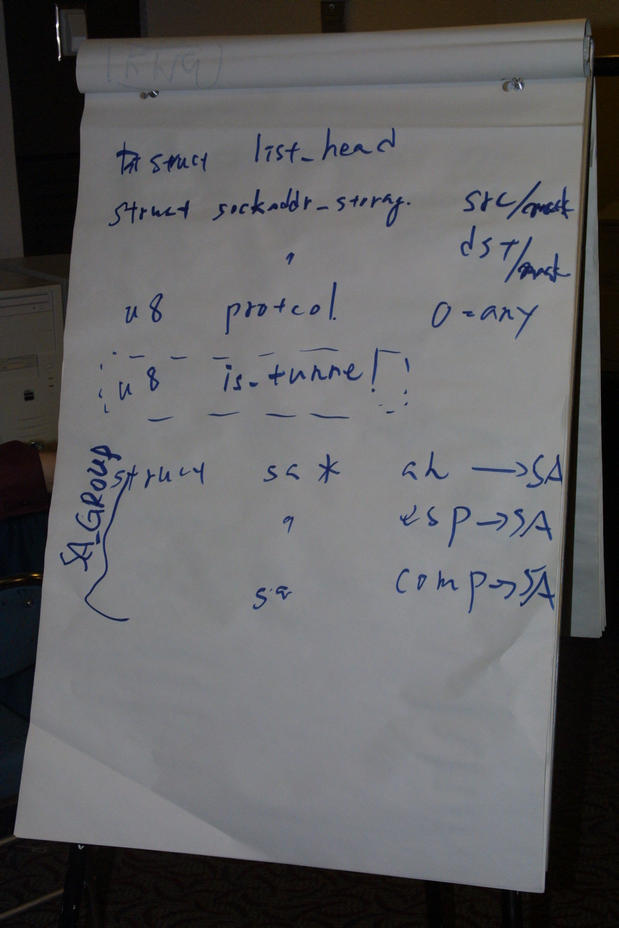 struct list_head
struct sockaddr_storag. src/mask
" dst/mask
u8 protcol 0=any
u8 is_tunnel
SA_GROUP
struct sa * ah →SA
" esp→SA
sa comp→SA